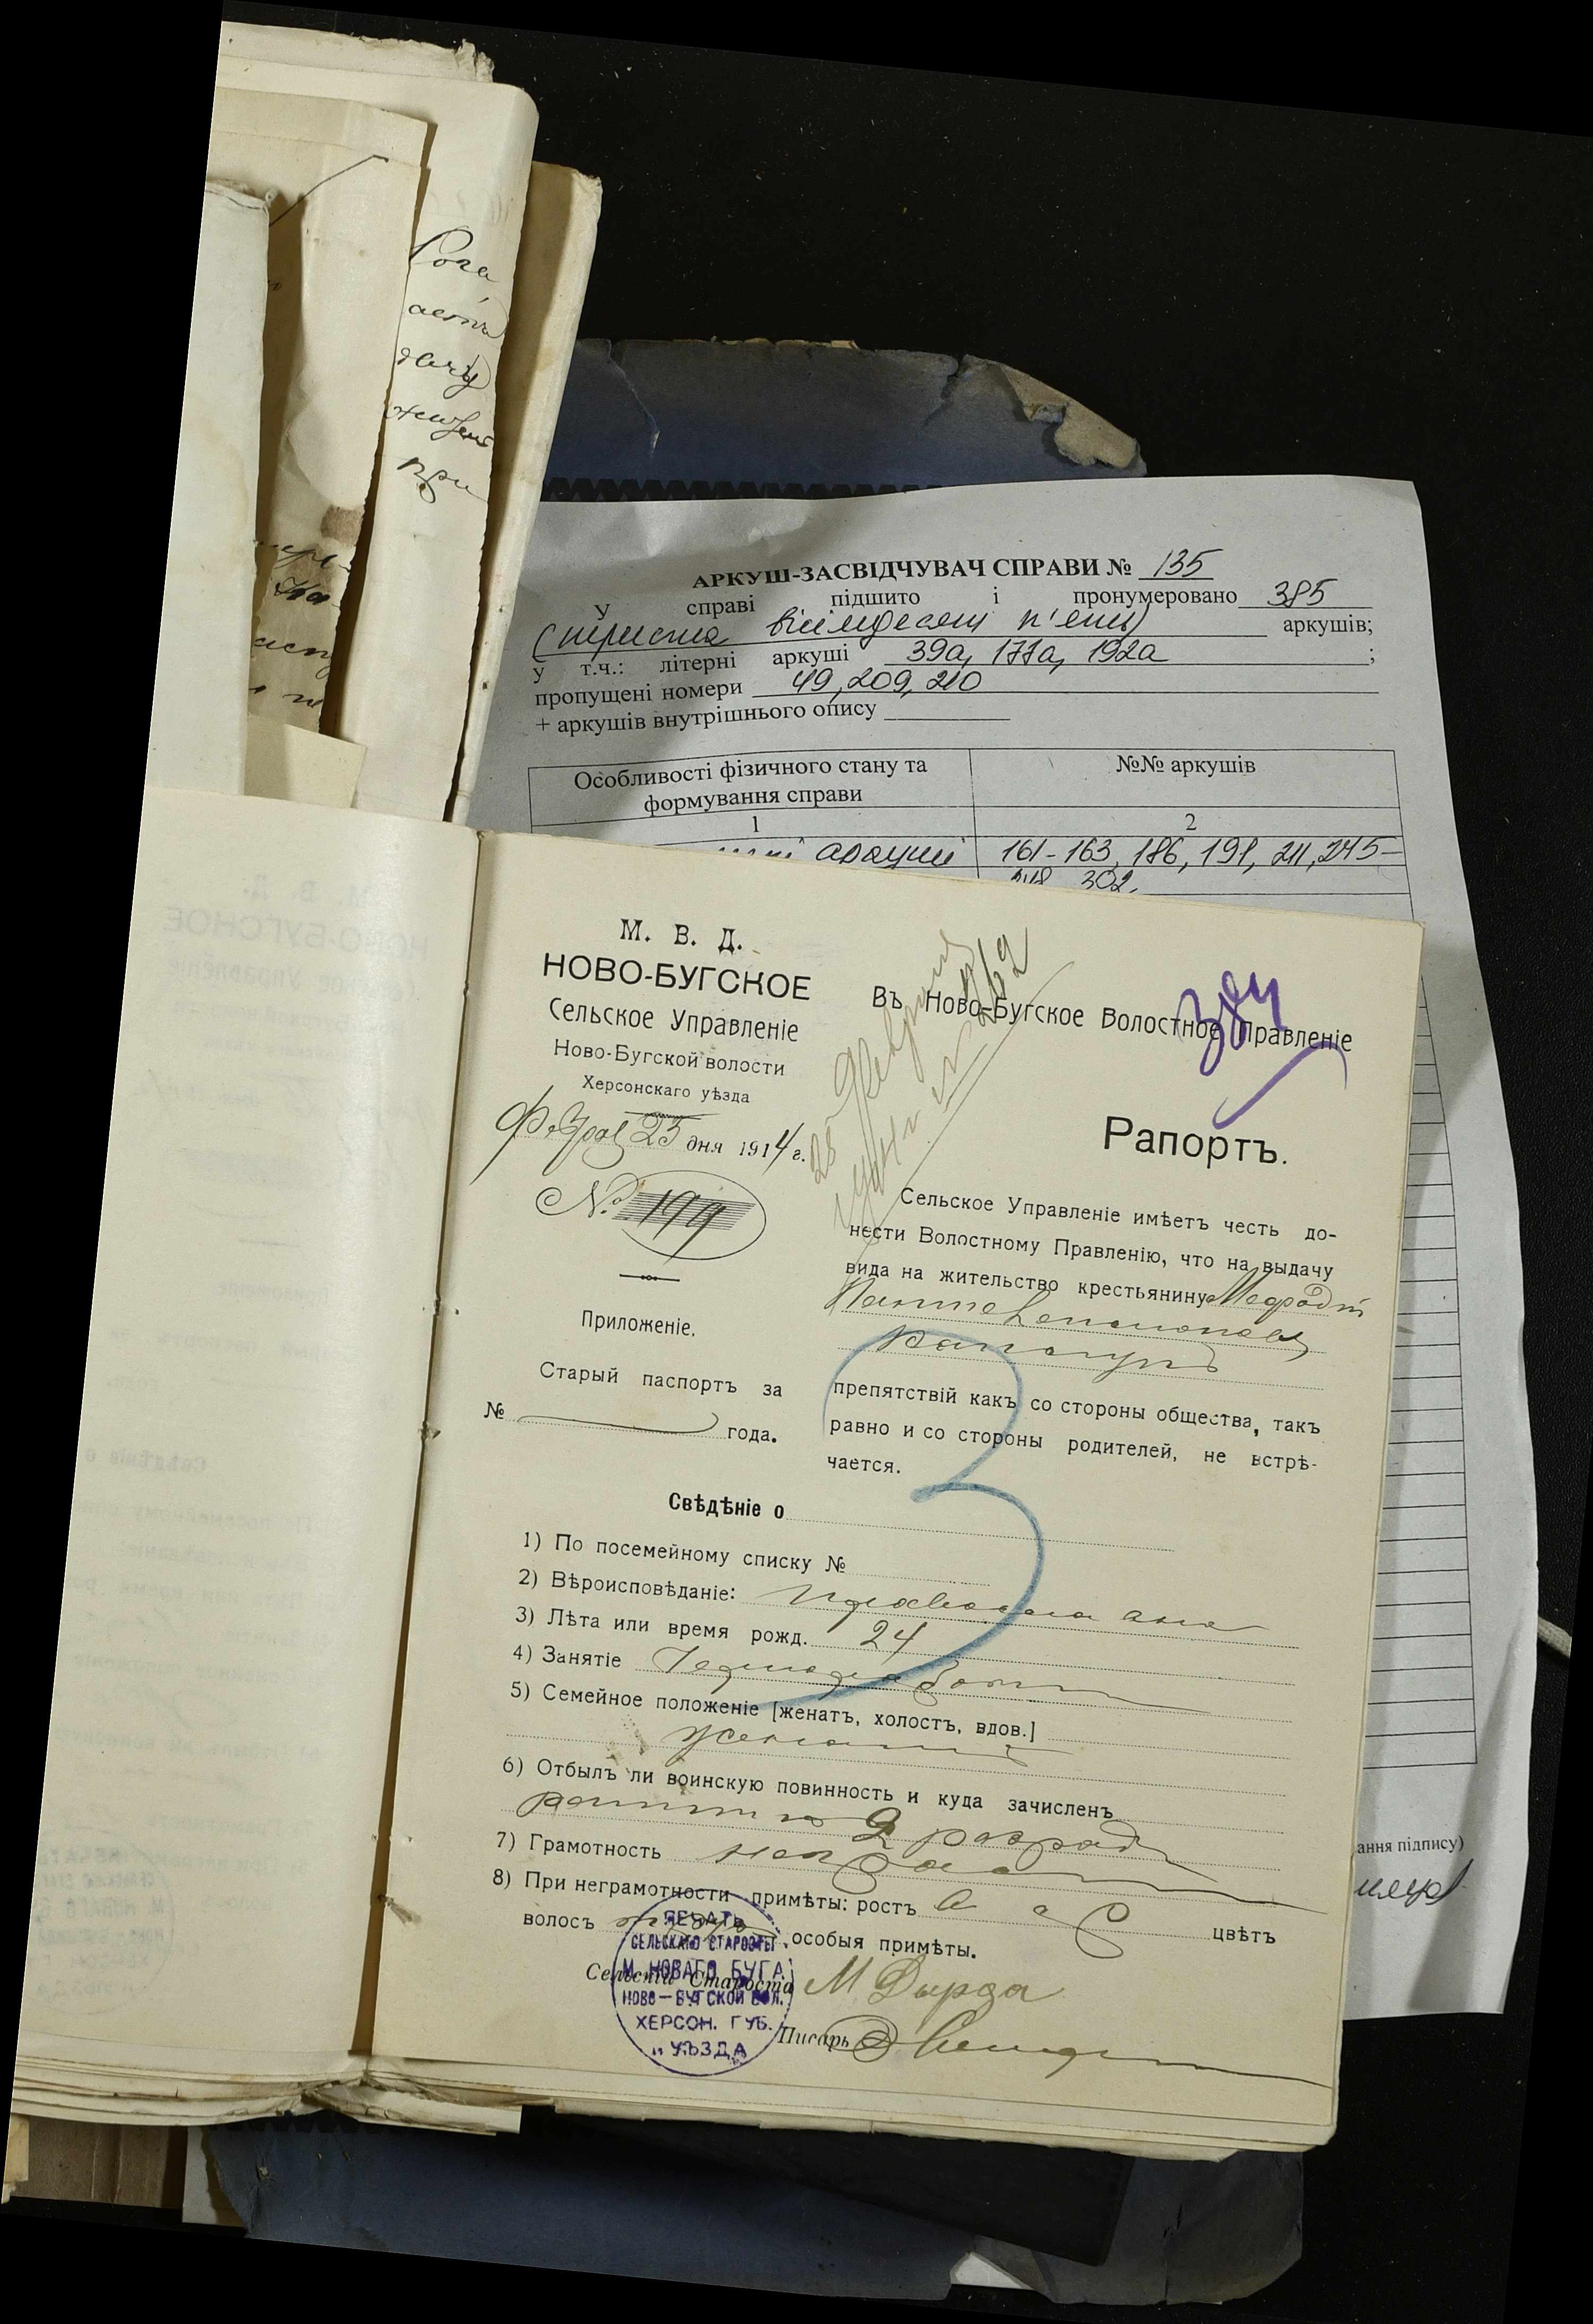 Рога
при
АРКУШ-ЗАСВІДЧУВАЧ СПРАВИ № 135
У справі підшито і пронумеровано 385
(триста вісімдесят п'ять) аркушів;
у т.ч.: літерні аркуші 39а, 177а, 192а ;
пропущені номери 49, 209, 210
+ аркушів внутрішнього опису
Особливості фізичного стану та
формування справи
№№ аркушів
1
2
161-163, 186, 191, 211, 245-
248, 302.
ання підпису)
М. В. Д.
НОВО-БУГСКОЕ
Сельское Управленіе
Ново-Бугской волости
Херсонскаго уѣзда
Февраля 25 дня 1914 г.
№ 199
Приложеніе.
Старый паспортъ за
№ года.
25 Февраля
1914 г №
Въ Ново-Бугское Волостное Правленіе
Рапортъ.
Сельское Управленіе имѣетъ честь до-
нести Волостному Правленію, что на выдачу
вида на жительство крестьянину Мефодій
Пантелеимоновъ
препятствій какъ со стороны общества, такъ
равно и со стороны родителей, не встрѣ-
чается.
Свѣдѣніе о
1) По посемейному списку №
2) Вѣроисповѣданіе: православна
3) Лѣта или время рожд. 24
4) Занятіе Чернорабочій
5) Семейное положеніе [женатъ, холостъ, вдов.]
женатъ
6) Отбылъ ли воинскую повинность и куда зачисленъ
ратникъ 2 разряда
7) Грамотность
8) При неграмотности примѣты: ростъ цвѣтъ
волосъ особыя примѣты.
Сельскій Староста М Дырда
Писарь
ПЕЧАТЬ
СЕЛЬСКАГО СТАРОСТЫ
М. НОВАГО БУГА
НОВО-БУГСКОЙ ВОЛ.
ХЕРСОН. ГУБ.
„ УѢЗДА